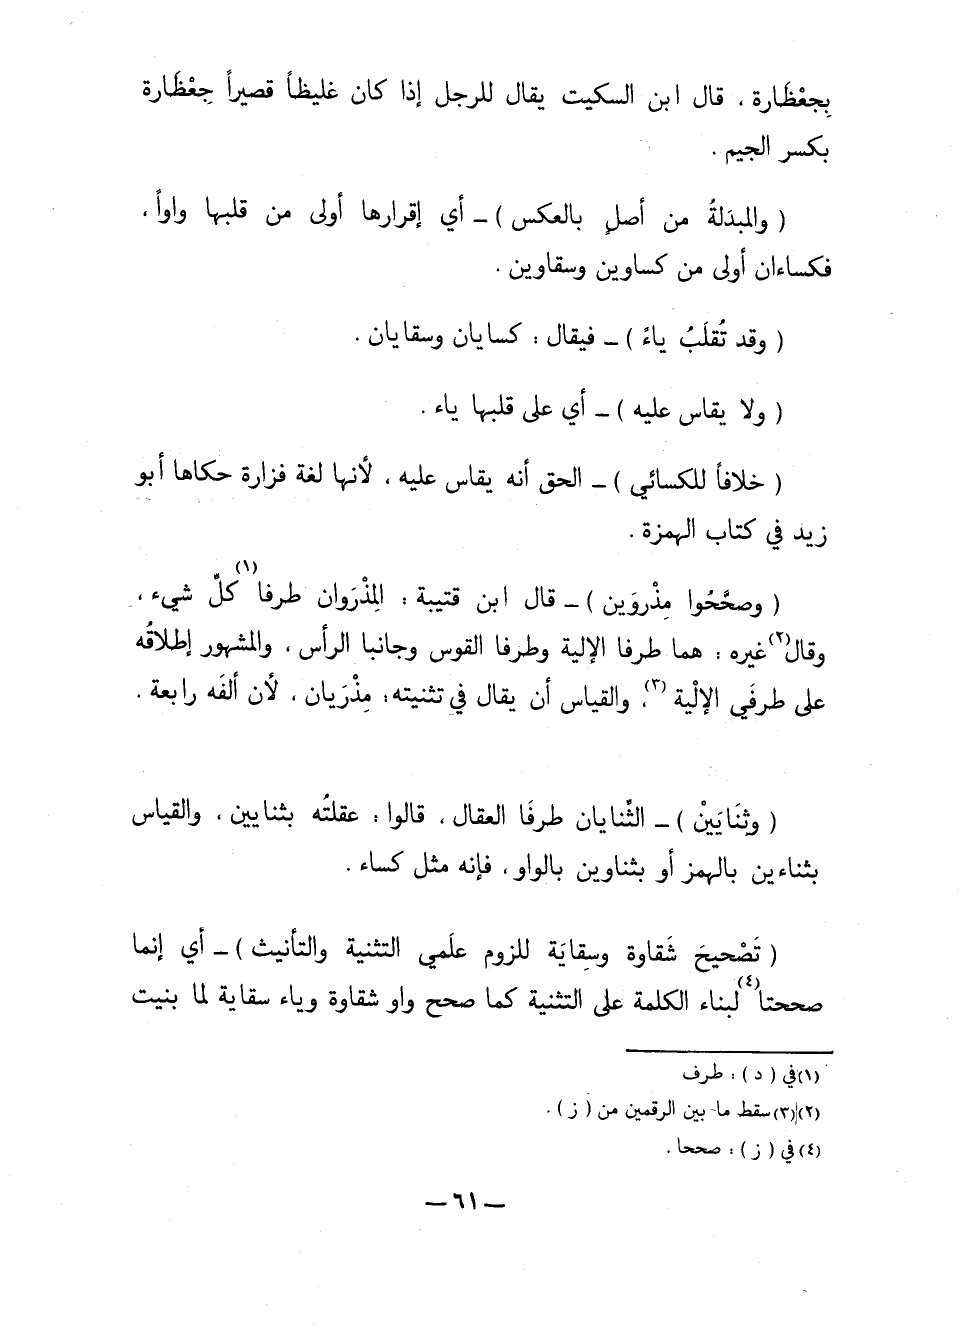 بِجعْظَارة ، قال ابن السكيت يقال للرجل إذا كان غليظاً قصيراً جِعْظَارة
بكسر الجيم .
( والمبدَلةُ من أصلٍ بالعكس ) ــ أي إقرارها أولى من قلبها واواً ،
فكساءان أولى من كساوين وسقاوين .
( وقد تُقلَبُ ياءً ) ــ فيقال : كسايان وسقايان .
( ولا يقاس عليه ) ــ أي على قلبها ياء .
( خلافاً للكسائي ) ــ الحق أنه يقاس عليه ، لأنها لغة فزارة حكاها أبو
زيد في كتاب الهمزة .
( وصحَّحُوا مِذْروَين ) ــ قال ابن قتيبة : المِذْرَوان طرفا(١) كلِّ شيء ،
وقال(٢) غيره : هما طرفا الإلية وطرفا القوس وجانبا الرأس ، والمشهور إطلاقُه
على طرفَي الإلْية (٣) ، والقياس أن يقال في تثنيته : مِذْرَيان ، لأن ألفَه رابعة .
( وثِنَايَيْن ) ــ الثَّنايان طرفَا العقال ، قالوا : عقلتُه بثنايين ، والقياس
بثناءين بالهمز أو بثناوين بالواو ، فإنه مثل كساء .
( تَصْحيحَ شَقاوة وسِقايَة للزوم علَمي التثنية والتأنيث ) ــ أي إنما
صححتا(٤) لبناء الكلمة على التثنية كما صحح واو شقاوة وياء سقاية لما بنيت
(١) في ( د ) : طرف
(٢)|(٣) سقط ما بين الرقمين من ( ز ) .
(٤) في ( ز ) : صححا .
ــ ٦١ ــ